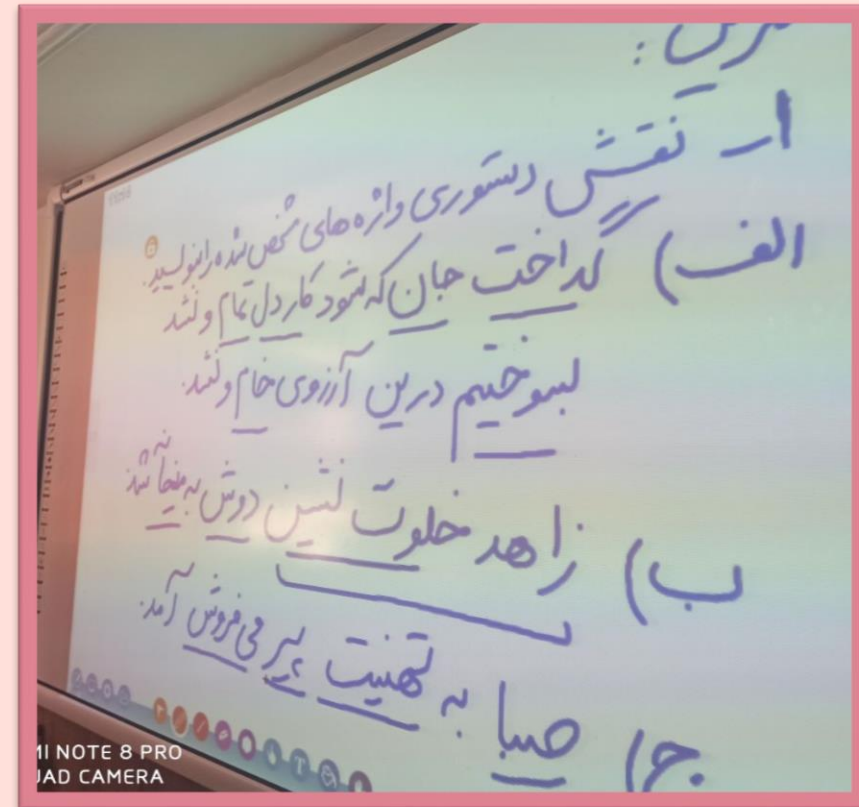 ۱ـ نقش دستوری واژه های مشخص شده را بنویسید.
الف) گداخت جان که شود کار دل تمام و نشد
بسوختیم درین آرزوی خام و نشد.
ب) زاهد خلوت نشین دوش به میخانه شد
ج) صبا به تهنیت پیر می فروش آمد.
MI NOTE 8 PRO
UAD CAMERA